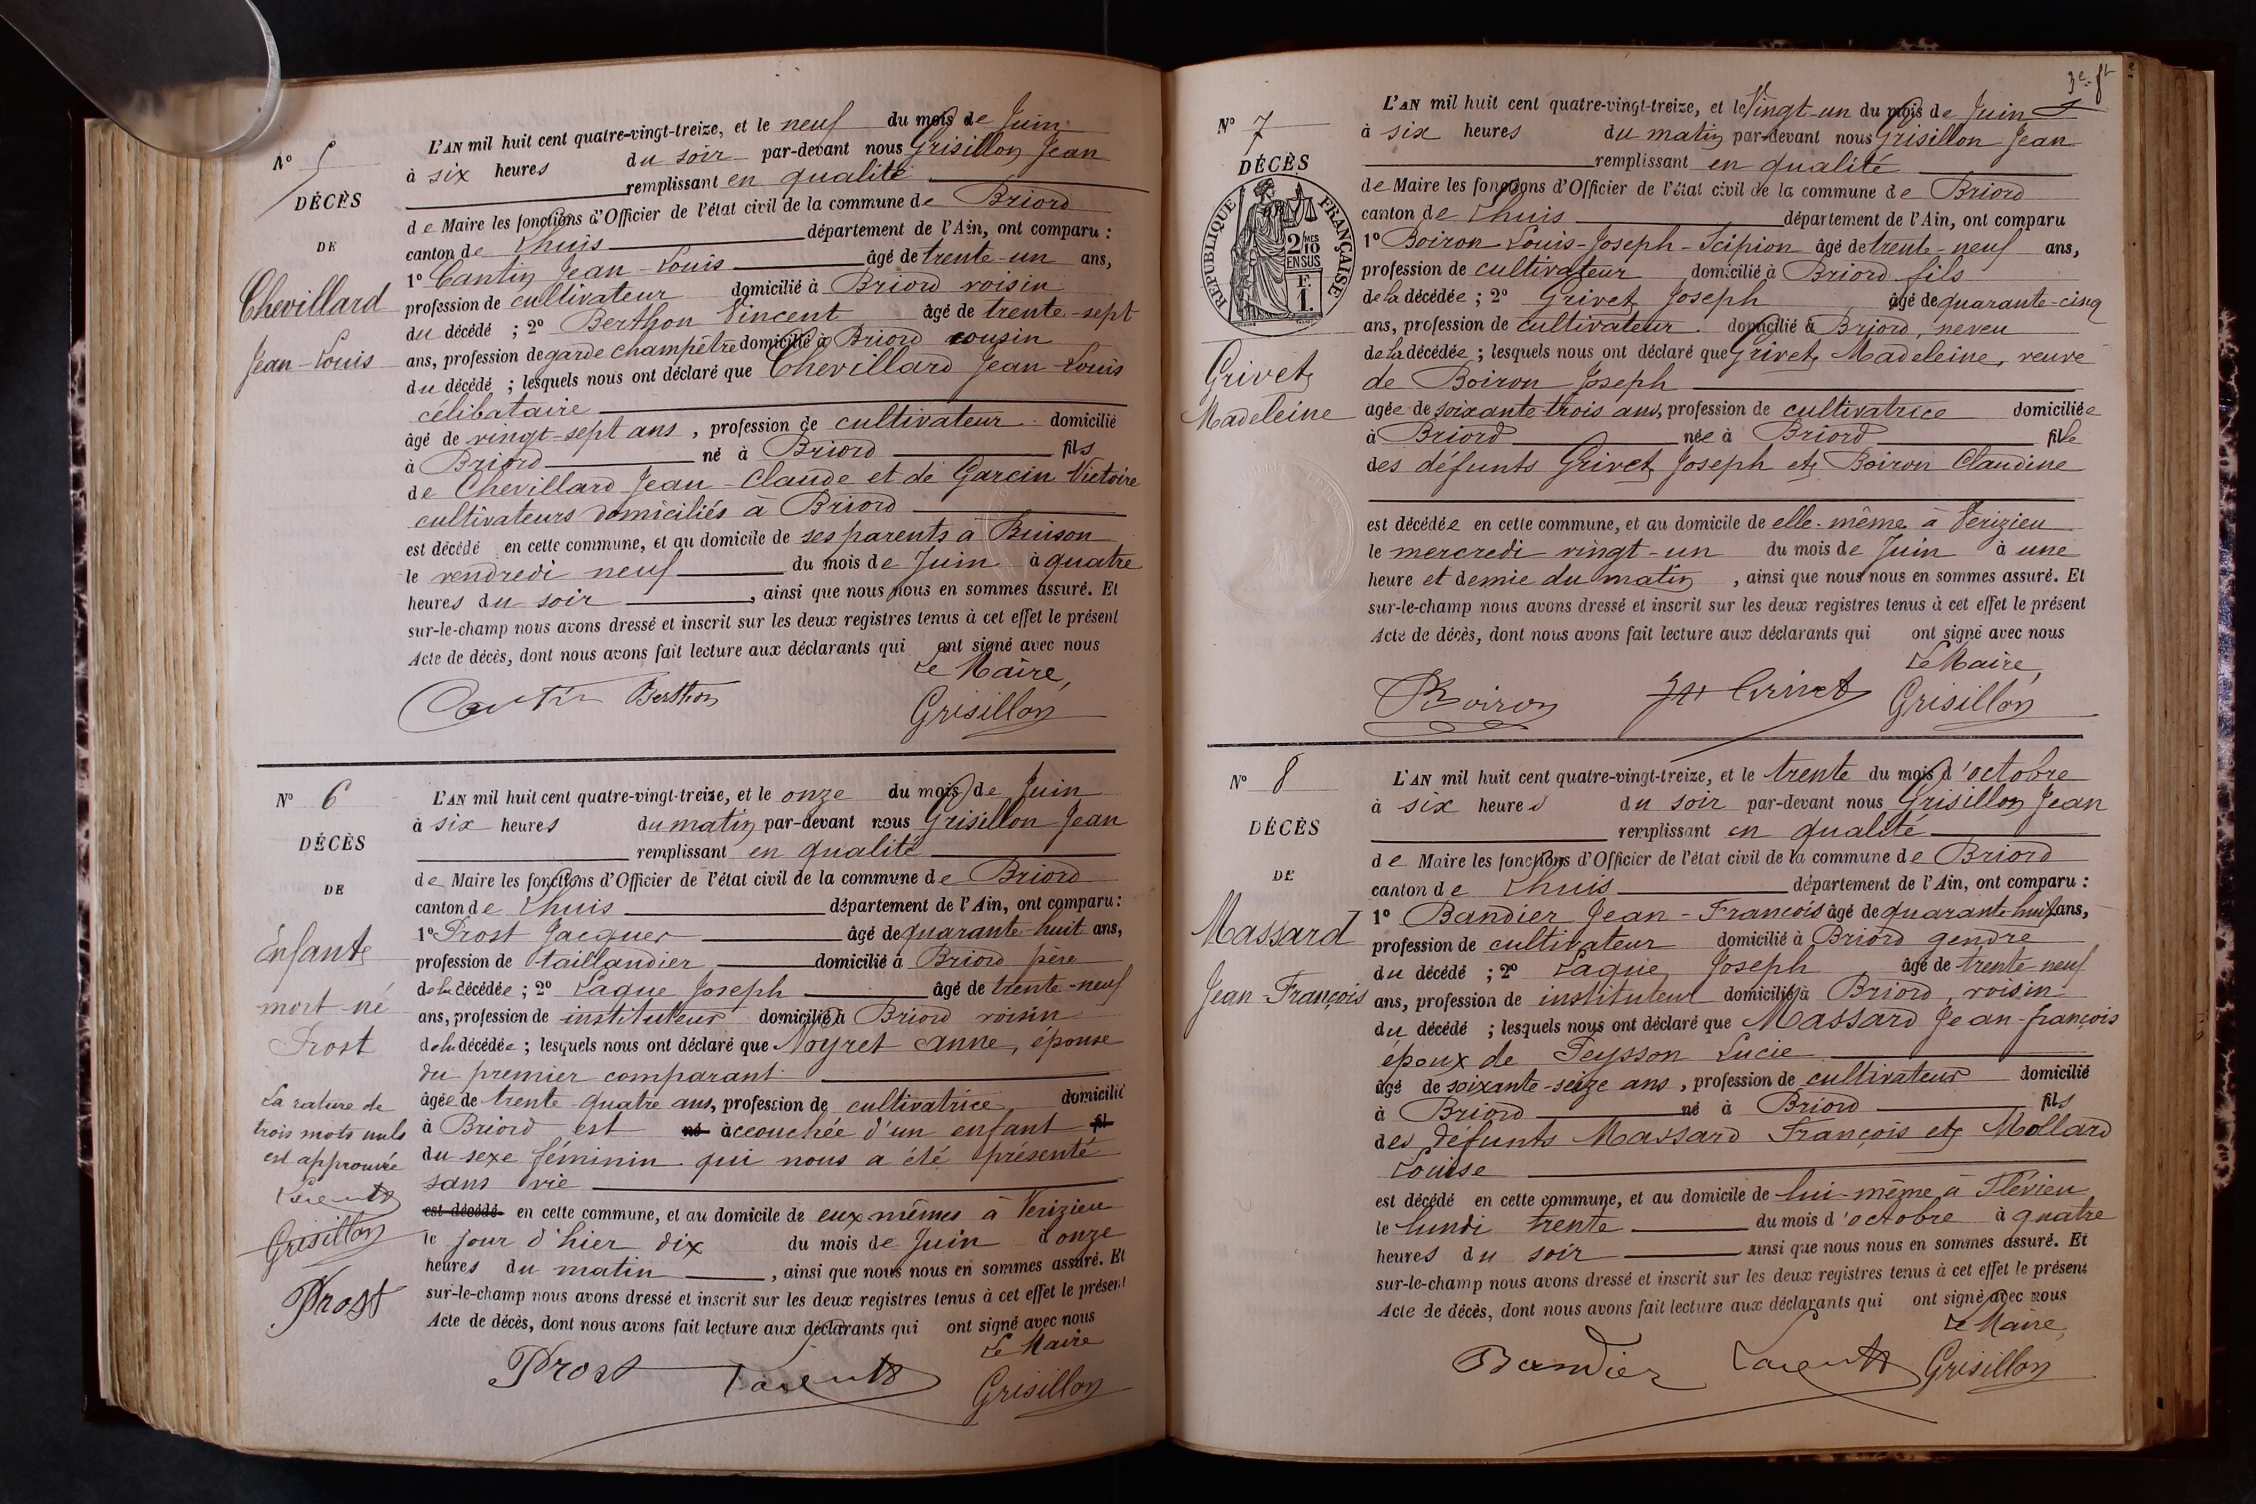 N° 5
DÉCÈS
DE
Chevillard
Jean-Louis
L'AN mil huit cent quatre-vingt-treize, et le neuf du mois de Juin
à six heures du soir par-devant nous Grisillon Jean
remplissant en qualité
de Maire les fonctions d'Officier de l'état civil de la commune de Briord
canton de Lhuis département de l'Ain, ont comparu :
1° Cantin Jean-Louis âgé de trente-un ans,
profession de cultivateur domicilié à Briord voisin
du décédé ; 2° Berthon Vincent âgé de trente-sept
ans, profession de garde champêtre domicilié à Briord cousin
du décédé ; lesquels nous ont déclaré que Chevillard Jean-Louis
célibataire
âgé de vingt-sept ans, profession de cultivateur domicilié
à Briord né à Briord fils
de Chevillard Jean-Claude et de Garcin Victoire
cultivateurs domiciliés à Briord
est décédé en cette commune, et au domicile de ses parents à Buison
le vendredi neuf du mois de Juin à quatre
heures du soir, ainsi que nous nous en sommes assuré. Et
sur-le-champ nous avons dressé et inscrit sur les deux registres tenus à cet effet le présent
Acte de décès, dont nous avons fait lecture aux déclarants qui ont signé avec nous
Le Maire,
Cantin Berthon Grisillon
N° 6
DÉCÈS
DE
Enfant
mort-né
Prost
La rature de
trois mots nuls
est approuvée
Grisillon
Prost
L'AN mil huit cent quatre-vingt-treize, et le onze du mois de Juin
à six heures du matin par-devant nous Grisillon Jean
remplissant en qualité
de Maire les fonctions d'Officier de l'état civil de la commune de Briord
canton de Lhuis département de l'Ain, ont comparu :
1° Prost Jacques âgé de quarante-huit ans,
profession de taillandier domicilié à Briord père
de la décédée ; 2° Lague Joseph âgé de trente-neuf
ans, profession de instituteur domicilié à Briord voisin
de la décédée ; lesquels nous ont déclaré que Noyret Anne, épouse
du premier comparant
âgée de trente-quatre ans, profession de cultivatrice domicilié
à Briord est né accouchée d'un enfant fil
du sexe féminin qui nous a été présenté
sans vie
est décédé en cette commune, et au domicile de eux mêmes à Verizieu
le jour d'hier dix du mois de Juin à onze
heures du matin, ainsi que nous nous en sommes assuré. Et
sur-le-champ nous avons dressé et inscrit sur les deux registres tenus à cet effet le présent
Acte de décès, dont nous avons fait lecture aux déclarants qui ont signé avec nous
Le Maire
Prost Grisillon
3e ft
N° 7
DÉCÈS
RÉPUBLIQUE FRANÇAISE
2/10MES
EN SUS
F.
1.
Grivet
Madeleine
L'AN mil huit cent quatre-vingt-treize, et le Vingt-un du mois de Juin
à six heures du matin par-devant nous Grisillon Jean
remplissant en qualité
de Maire les fonctions d'Officier de l'état civil de la commune de Briord
canton de Lhuis département de l'Ain, ont comparu
1° Boiron Louis-Joseph-Scipion âgé de trente-neuf ans,
profession de cultivateur domicilié à Briord fils
de la décédée ; 2° Grivet Joseph âgé de quarante-cinq
ans, profession de cultivateur domicilié à Briord, neveu
de la décédée ; lesquels nous ont déclaré que Grivet Madeleine, veuve
de Boiron Joseph
agée de soixante-trois ans, profession de cultivatrice domiciliée
à Briord née à Briord fille
des défunts Grivet Joseph et Boiron Claudine
est décédée en cette commune, et au domicile de elle-même à Verizieu
le mercredi vingt-un du mois de Juin à une
heure et demie du matin, ainsi que nous nous en sommes assuré. Et
sur-le-champ nous avons dressé et inscrit sur les deux registres tenus à cet effet le présent
Acte de décès, dont nous avons fait lecture aux déclarants qui ont signé avec nous
Le Maire,
Boiron Jh Grivet Grisillon
N° 8
DÉCÈS
DE
Massard
Jean-François
L'AN mil huit cent quatre-vingt-treize, et le trente du mois d'octobre
à six heures du soir par-devant nous Grisillon Jean
remplissant en qualité
de Maire les fonctions d'Officier de l'état civil de la commune de Briord
canton de Lhuis département de l'Ain, ont comparu :
1° Bandier Jean-François âgé de quarante-huit ans,
profession de cultivateur domicilié à Briord gendre
du décédé ; 2° Lague Joseph âgé de trente-neuf
ans, profession de instituteur domicilié à Briord, voisin
du décédé ; lesquels nous ont déclaré que Massard Jean-françois
époux de Peysson Lucie
âgé de soixante-seize ans, profession de cultivateur domicilié
à Briord né à Briord fils
des défunts Massard François et Mollard
Louise
est décédé en cette commune, et au domicile de lui-même à Flévieu
le lundi trente du mois d'octobre à quatre
heures du soir ainsi que nous nous en sommes assuré. Et
sur-le-champ nous avons dressé et inscrit sur les deux registres tenus à cet effet le présent
Acte de décès, dont nous avons fait lecture aux déclarants qui ont signé avec nous
Le Maire,
Bandier Grisillon